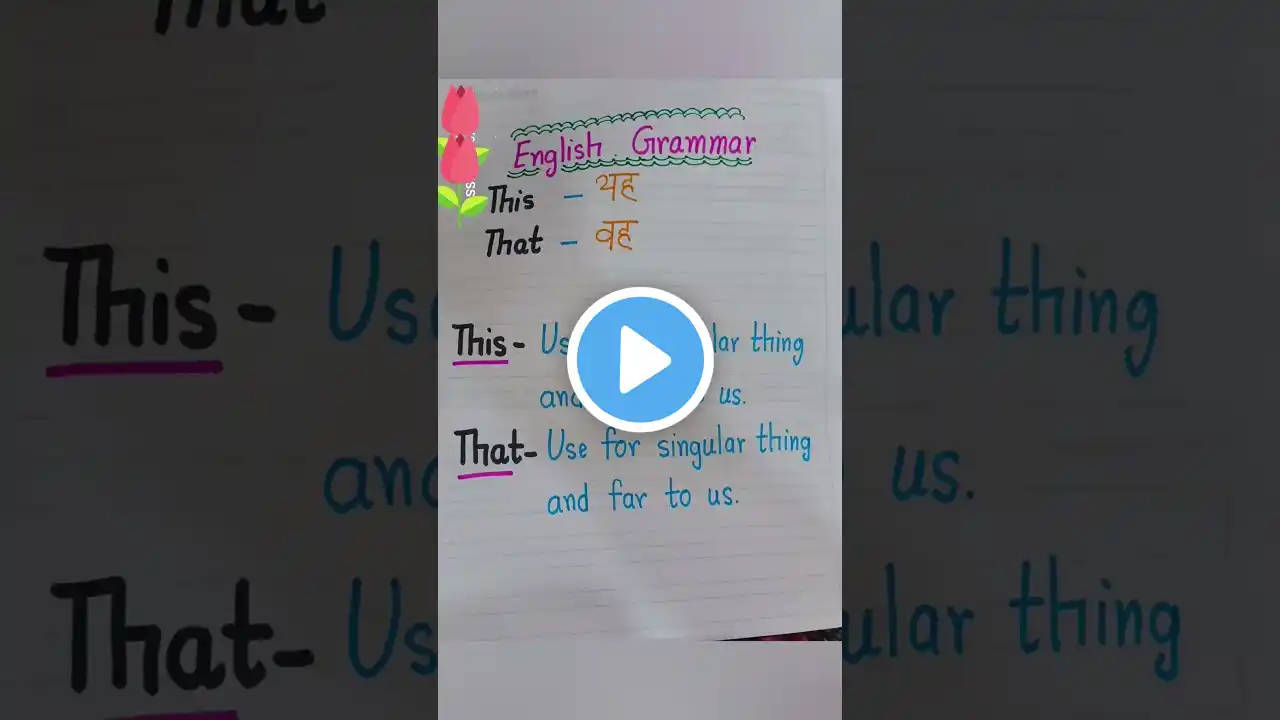 English Grammar
This - यह
That - वह
This - lar thing
us.
That - Use for singular thing
and far to us.